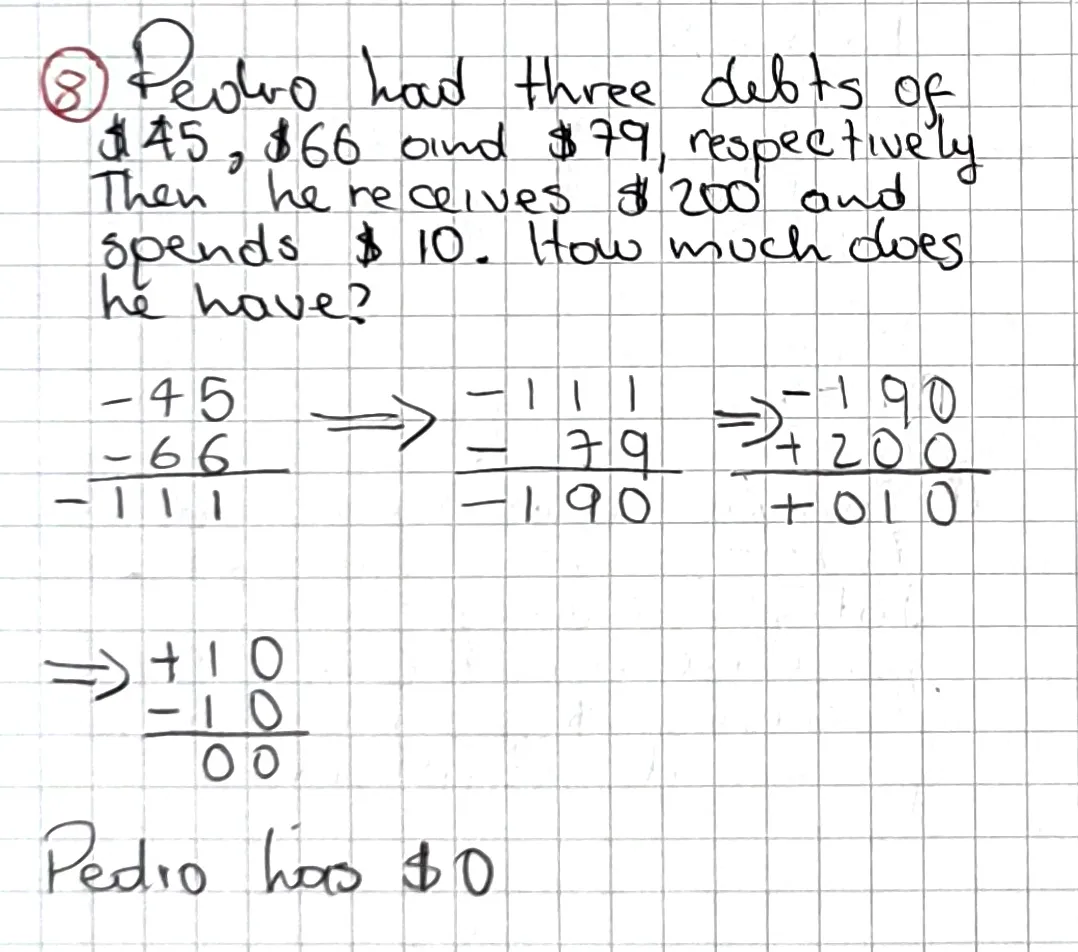 8 Pedro had three debts of
$45, $66 and $79, respectively
Then he receives $200 and
spends $10. How much does
he have?
-45 ⇒ -111 ⇒ -190
-66 - 79 +200
-111 -190 +010
⇒ +10
-10
00
Pedro has $0